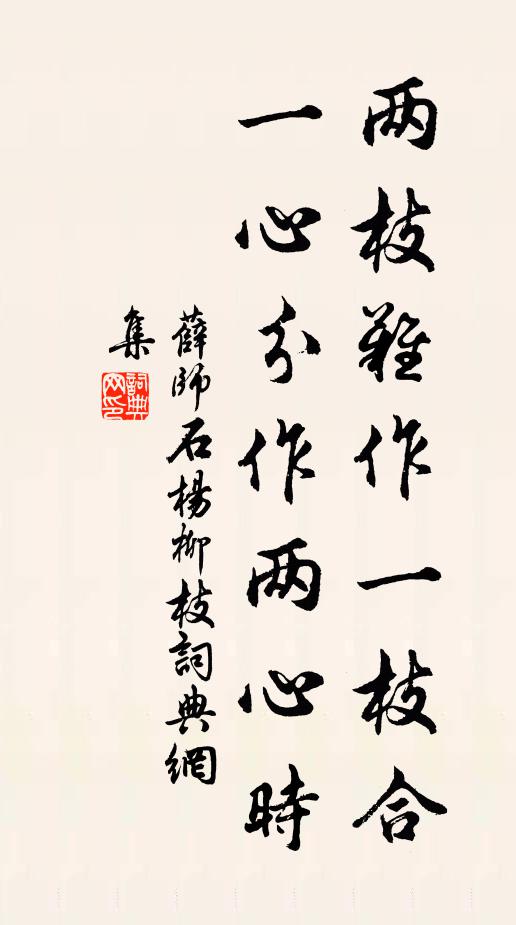 两枝難作一枝合
一心分作两心時
薛師石楊柳枝詞典網
集
詞典
网印